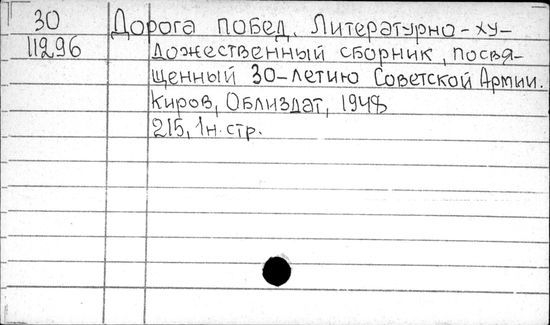 30 Дорога побед. Литературно-ху-
11296 дожественный сборник, посвя-
щенный 30-летию Советской Армии.
Киров, Облиздат, 1948
215, 1н. стр.